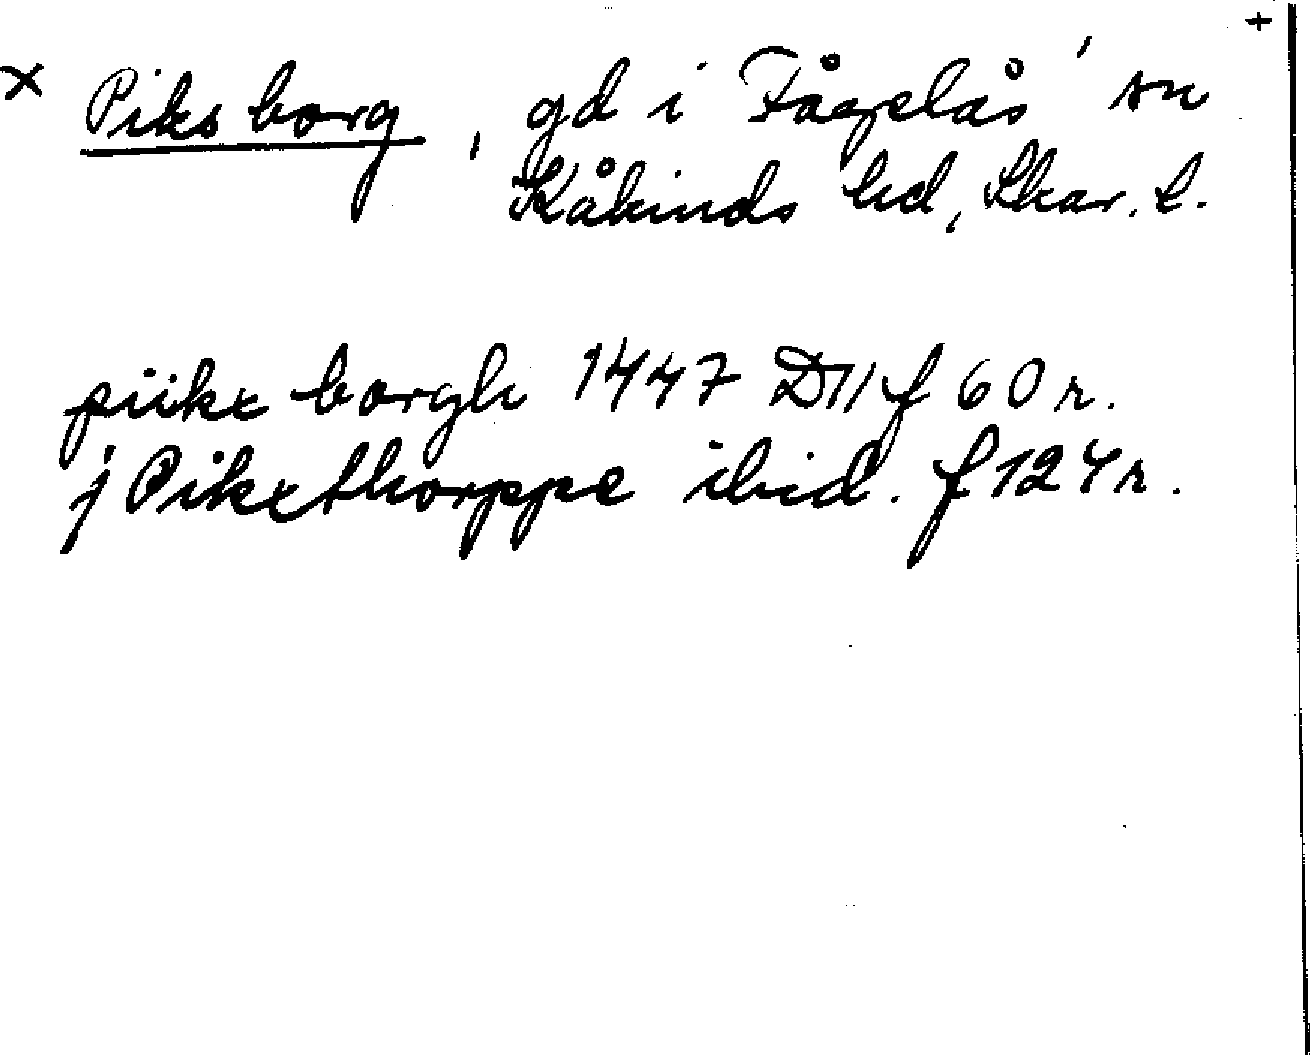 +
x Piksborg, gd i Fågelås' sn
Kåkinds hd, Skar. l.
piikx borgh 1447 D11 f 60 r.
j Pikxthorppe ibid. f 124 r.